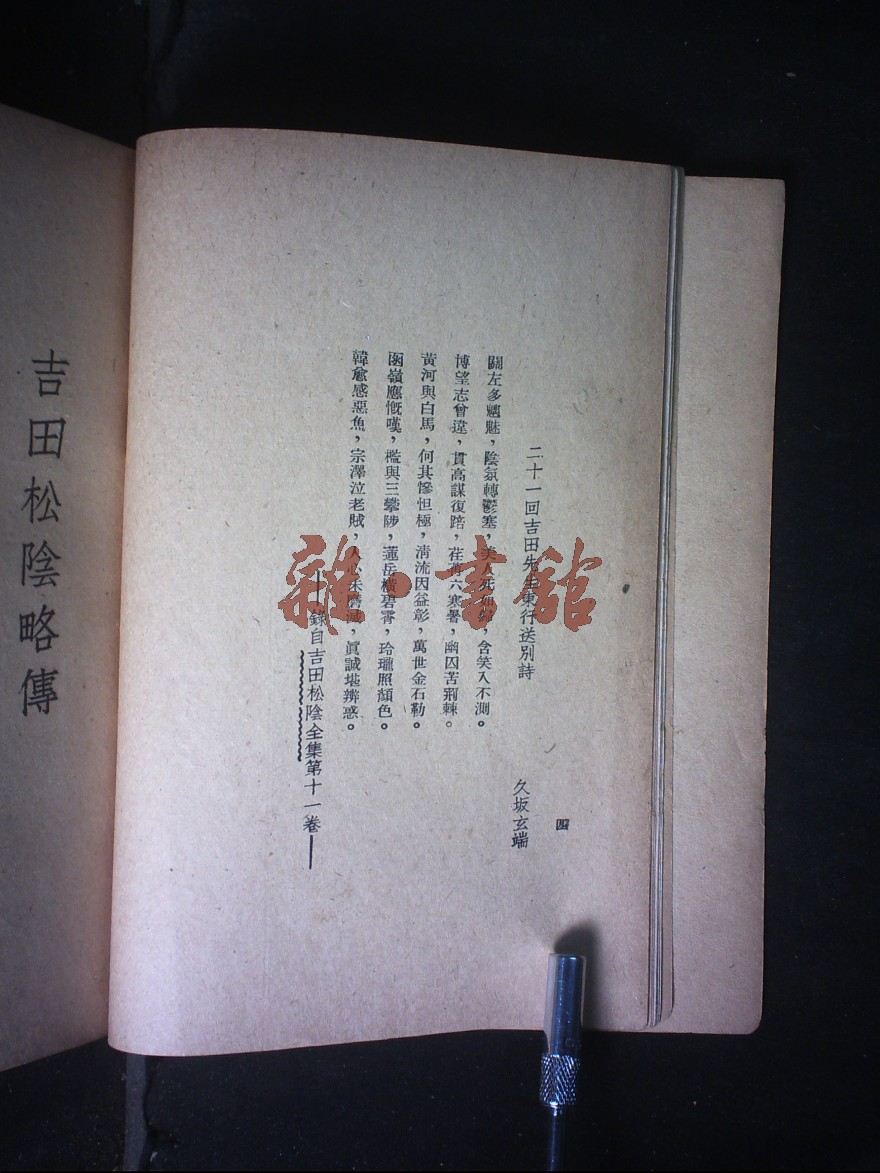 四
二十一回吉田先生東行送別詩
久坂玄端
關左多魑魅，陰氛轉鬱塞，美人死如歸，含笑入不測。
博望志曾違，貫高謀復踣，荏苒六寒暑，幽囚苦荊棘。
黃河與白馬，何其慘怛極，淸流因益彰，萬世金石勒。
函嶺應慨嘆，檻輿三攀陟，蓮岳橫碧霄，玲瓏照顏色。
韓愈感惡魚，宗澤泣老賊，人心未磨滅，眞誠堪辨惑。
——錄自吉田松陰全集第十一卷——
吉田松陰略傳
雜·書館